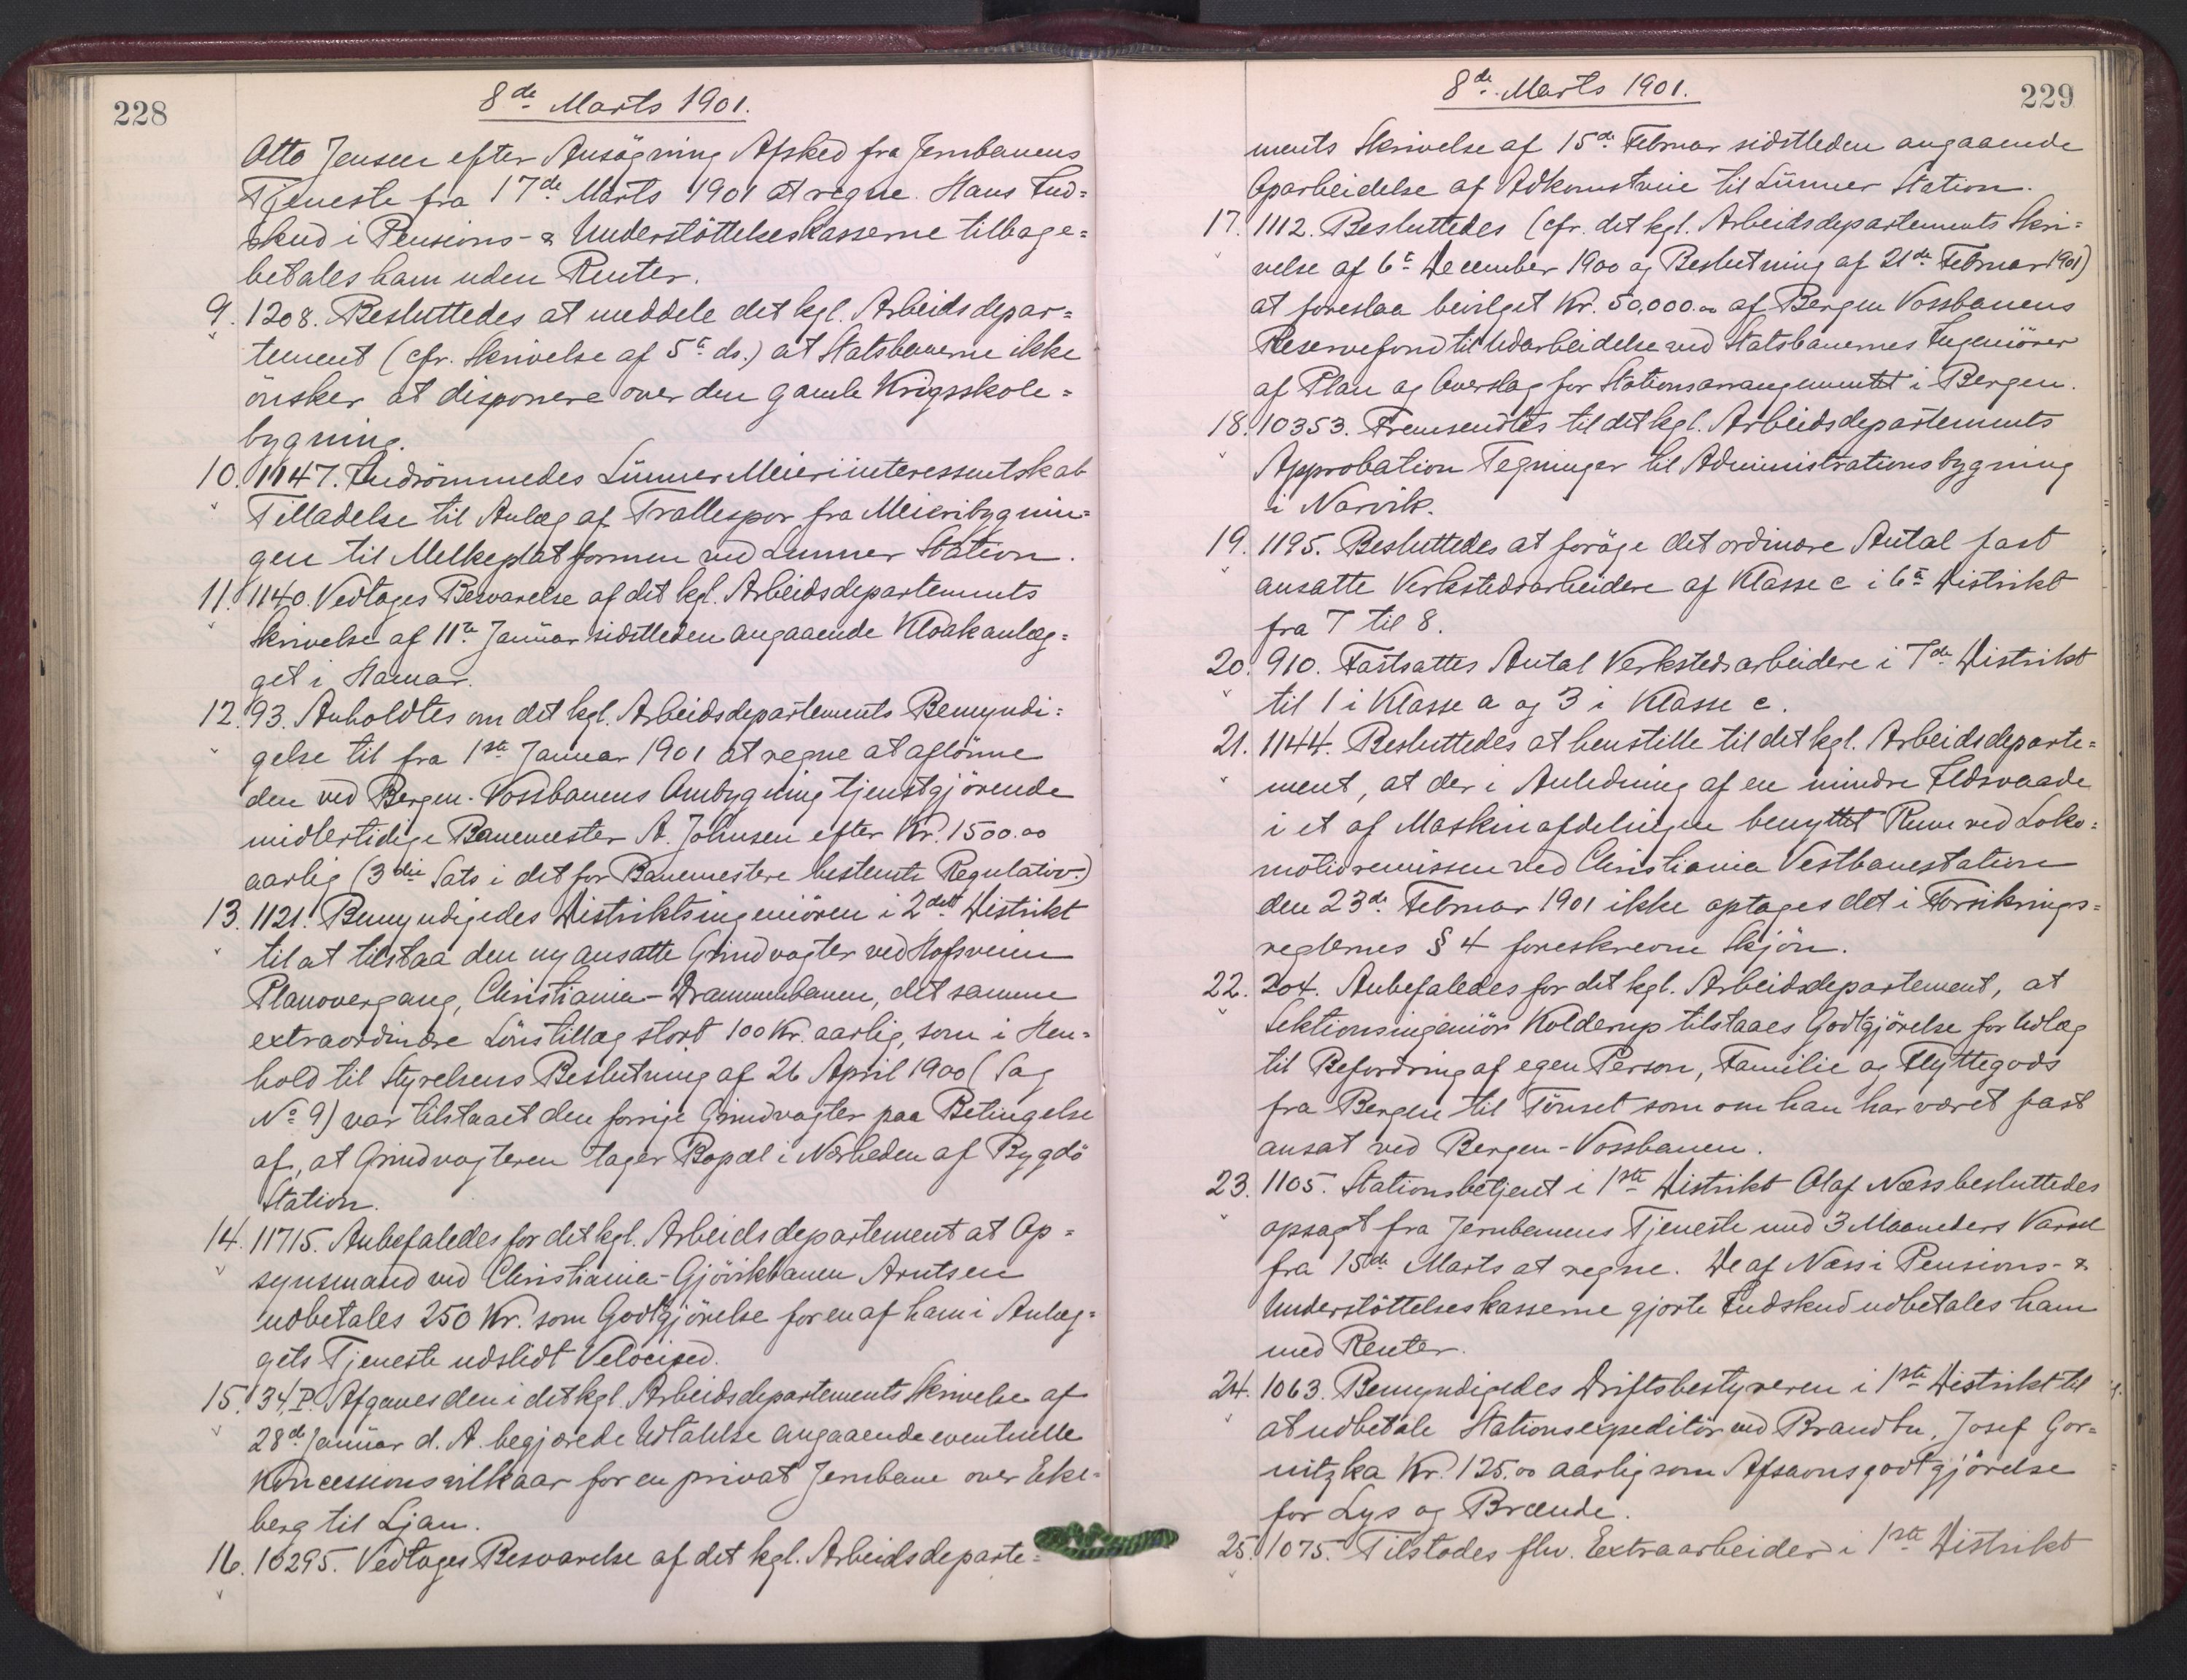 228
8de Marts 1901.
Otto Jensen efter Ansögning Afsked fra Jernbanens
Tjeneste fra 17de Marts 1901 at regne. Hans Ind=
skud i Pensions- & Understöttelseskasserne tilbage=
betales ham uden Renter.
9. 1208. Besluttedes at meddele det kgl. Arbeidsdepar=
tement (cfr. Skrivelse af 5te ds.) at Statsbanerne ikke
önsker at disponere over den gamle Krigsskole=
bygning.
10. 1147. Indrömmedes Lunner Meieriinteressentskab
Tilladelse til Anlæg af Trallespor fra Meieribygnin=
gen til Melkeplatformen ved Lunner Station.
11. 1140. Vedtoges Besvarelse af det kgl. Arbeidsdepartements
Skrivelse af 11te Januar sidstleden angaaende Kloakanlæg=
get i Hamar.
12. 93. Anholdtes om det kgl. Arbeidsdepartements Bemyndi=
gelse til fra 1ste Januar 1901 at regne at aflönne
den ved Bergen-Vossbanens Ombygning tjenstgjörende
midlertidige Banemester A. Johnsen efter Kr. 1500.00
aarlig (3die Sats i det for Banemestere bestemte Regulativ.)
13. 1121. Bemyndigedes Distriktsingeniören i 2det Distrikt
til at tilstaa den ny ansatte Grindvogter ved Hofsveien
Planovergang, Christiania-Drammenbanen, det samme
extraordinære Lönstillæg stort 100 Kr. aarlig, som i Hen=
hold til Styrelsens Beslutning af 26 April 1900 (Sag
No 9) var tilstaaet den forrige Grindvogter paa Betingelse
af, at Grindvogteren tager Bopæl i Nærheden af Bygdö
Station.
14. 11715. Anbefaledes for det kgl. Arbeidsdepartement at Op=
synsmand ved Christiania-Gjövikbanen Arntsen
udbetales 250 Kr. som Godtgjörelse for en af ham i Anlæg=
gets Tjeneste udslidt Velociped.
15. 34 P. Afgaves den i det kgl. Arbeidsdepartements Skrivelse af
28de Januar d. A. begjærede Udtalelse angaaende eventuelle
Koncessionsvilkaar for en privat Jernbane over Eke=
berg til Ljan.
16. 10295. Vedtoges Besvarelse af det kgl. Arbeidsdeparte=
229
8de Marts 1901.
ments Skrivelse af 15de Februar sidstleden angaaende
Oparbeidelse af Adkomstveie til Lunner Station.
17. 1112. Besluttedes (cfr. det kgl. Arbeidsdepartements Skri=
velse af 6te December 1900 og Beslutning af 21de Februar 1901)
at foreslaa bevilget Kr. 50,000.00 af Bergen Vossbanens
Reservefond til Udarbeidelse ved Statsbanernes Ingeniörer
af Plan og Overslag for Stationsarrangementet i Bergen.
18. 10353. Fremsendtes til det kgl. Arbeidsdepartements
Approbation Tegninger til Administrationsbygning
i Narvik.
19. 1195. Besluttedes at foröge det ordinære Antal fast
ansatte Verkstedsarbeidere af Klasse c i 6te Distrikt
fra 7 til 8.
20. 910. Fastsattes Antal Verkstedsarbeidere i 7de Distrikt
til 1 i Klasse a og 3 i Klasse c.
21. 1144. Besluttedes at henstille til det kgl. Arbeidsdeparte=
ment, at der i Anledning af en mindre Ildsvaade
i et af Maskinafdelingen benyttet Rum ved Loko=
motivremissen ved Christiania Vestbanestation
den 23de Februar 1901 ikke optages det i Forsikrings=
reglernes § 4 foreskrevne Skjön.
22. 204. Anbefaledes for det kgl. Arbeidsdepartement, at
Sektionsingeniör Kolderup tilstaaes Godtgjörelse for Udlæg
til Befordring af egen Person, Familie og Flyttegods
fra Bergen til Tönset som om han har været fast
ansat ved Bergen-Vossbanen.
23. 1105. Stationsbetjent i 1ste Distrikt Olaf Næss besluttedes
opsagt fra Jernbanens Tjeneste med 3 Maaneders Varsel
fra 15de Marts at regne. De af Næss i Pensions- &
Understöttelseskasserne gjorte Indskud udbetales ham
med Renter.
24. 1063. Bemyndigedes Driftsbestyreren i 1ste Distrikt til
at udbetale Stationsexpeditör ved Brandbu, Josef Gor=
nitzka Kr. 125.00 aarlig som Afsavnsgodtgjörelse
for Lys og Brænde.
25. 1075. Tilstodes flv. Extraarbeider i 1ste Distrikt